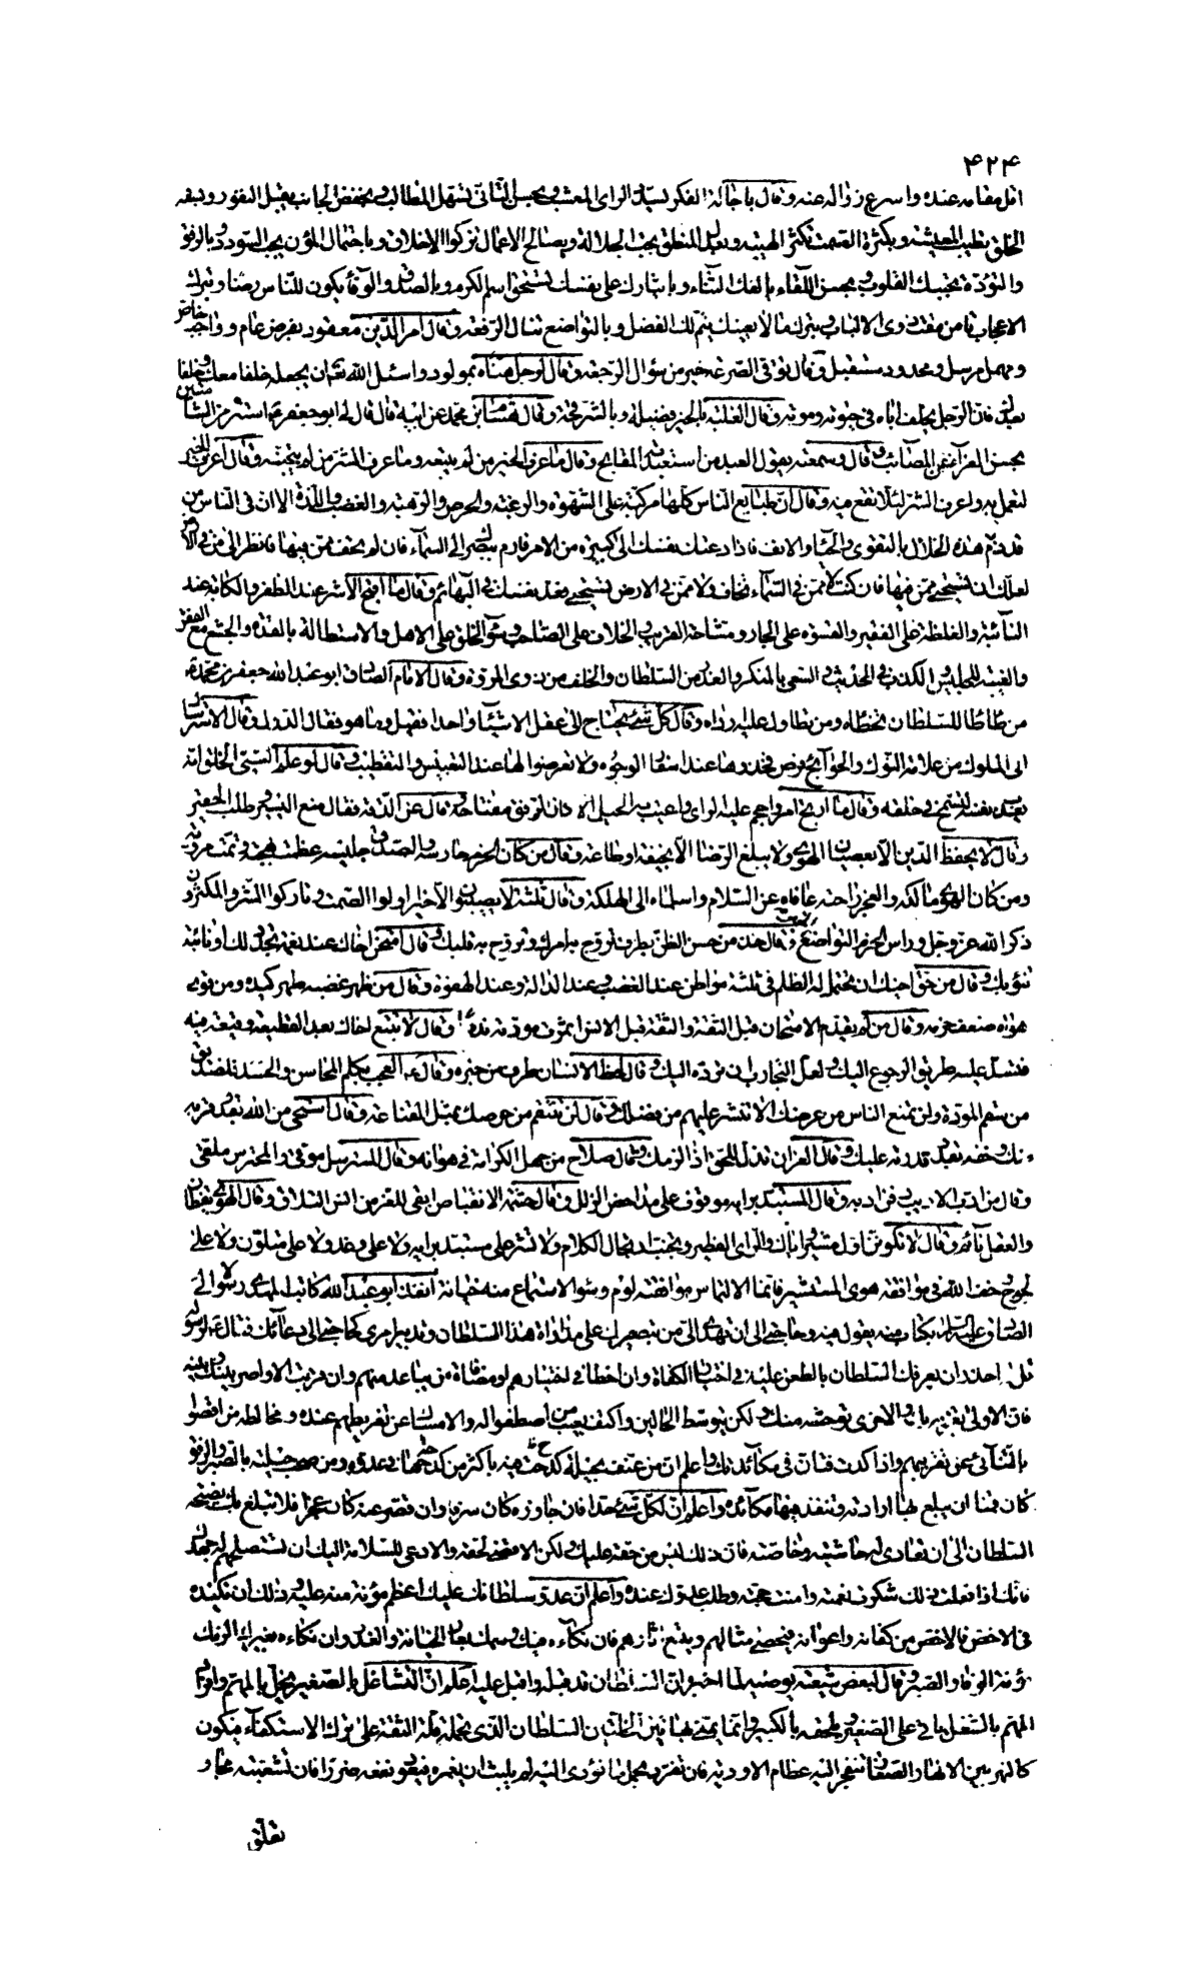 ۴۲۴
اقل مقامه عنده واسرع زواله عنه وقال باجالة الفكر يستدر الراى المعشب وبحسن التأنى تسهل المطالب وبخفض الجانب تقبل النفور وبسعة
الخلق يطيب المعيشة وبكثرة الصمت تكثر الهيبة وبعدل المنطق يجب الجلالة وبصالح الاعمال تزكوا الاخلاق وباحتمال المؤن يجب السودد وبالرفق
والتؤدة يحبك القلوب وبحسن اللقاء يالفك الثناء وبايثارك على نفسك تستحق اسم الكرم وبالصدق والوفاء يكون للناس رضا وبترك
الاعجاب تامن مقت ذوى الالباب وبترك مالا يعنيك يتم لك الفضل وبالتواضع تنال الرفعة وقال امر الدين معقود بفرض عام وواجب خاص
ومهمل مرسل ومحدود مستقبل وقال توقى الصرعة خير من سؤال الرجعة وقال لرجل هناه بمولود واسئل الله تع ان يجعله خلفا معك وخلفا
بعدك فان الرجل يخلف اباه فى حيوته وموته وقال الغلبة بالخير فضيلة وبالشر قحة وقال هشام بن محمد عن ابيه قال قال لى ابو جعفر
بحسن العزاء عن المصائب وقال وسمعته يقول العبد من استعبدته المقابح وقال ما عرف الخير من لم يتبعه وما عرف الشر من لم يجتنبه وقال اعرف الخير
لتعمل به واعرف الشر لئلا تقع فيه وقال ان طبايع الناس كلها مركبة على الشهوة والرغبة والحرص والرهبة والغضب واللذة الا ان فى الناس من
قد دم هذه الخلال بالتقوى والحياء والانف فاذا دعتك نفسك الى كبيرة من الامر فارم ببصرك الى السماء فان لم تخف ممن فيها فانظر الى من فى الارض
لعلك ان تستحيى ممن فيها فان كنت لا ممن فى السماء تخاف ولا ممن فى الارض تستحيى فعد نفسك فى البهائم وقال ما اقبح الاشر عند الظفر والكابة عند
النائبة والغلظة على الفقير والقسوة على الجار ومشاحة القريب والخلاف على الصاحب وسوء الخلق على الاهل والاستطالة بالقدرة والجشع مع الفقر
والغيبة للجليس والكذب فى الحديث والسعى بالمنكر والغدر من السلطان والخلف من ذوى المروة وقال الامام الصادق ابو عبد الله جعفر بن محمد
من طأطأ للسلطان تخطاه ومن تطاول عليه رداه وقال كل شئ يحتاج الى عقل الا شيئا واحدا فقيل وما هو فقال الدول وقال الاسترسال
الى الملوك من علامة النوك والحوائج فرص فخذوها عند اسفار الوجوه ولا تعرضوا لها عند التعبيس والتقطيب وقال لو علم السيئ الخلق انه
يعذب نفسه لتسمح فى خلقه وقال ما ارتج امرء واحجم عليه الراى واعيت به الحيل الا كان الرفق مفتاحه وقال عن الدقة فقال منع اليسير وطلب الحقير
وقال لا يحفظ الدين الا بعصيان الهوى ولا يبلغ الرضا الا بخيفة او طاعة وقال من كان الحزم حارسه والصدق جليسه عظمت بهجته وتمت مروته
ومن كان الهوى مالكه والعجز راحته عاقاه عن السلامة واسلماه الى الهلكة وقال ثلثة لا يصيبون الا خيرا اولوا الصمت وتاركوا الشر والمكثرون
ذكر الله عز وجل وراس الحزم التواضع وقال خذ من حسن الظن بطرف تروج به امرك وتروح به قلبك وقال امتحن اخاك عند نعمة تجدد لك او نائبة
تنوبك وقال من حق اخيك ان تحتمل له الظلم فى ثلثة مواطن عند الغضب وعند الذالة وعند الهفوة وقال من ظهر غضبه ظهر كيده ومن قوى
هواه ضعف حزمه وقال من لم يقدم الامتحان قبل الثقة والثقة قبل الانس اثمرت مودته ندما وقال لا تتبع اخاك بعد القطيعة وقيعة فيه
فتسد عليه طريق الرجوع اليك ولعل التجارب ان ترده اليك وقال لحظ الانسان طرف من خبره وقال العجب يكلم المحاسن والحسد للصديق
من سقم المودة ولن تمنع الناس من عرضك الا بما تنشر عليهم من فضلك وقال لن تنتقم من حرصك بمثل القناعة وقال استحى من الله بقدر قربه
منك وخفه بقدر قدرته عليك وقال العز ان تذل للحق اذا لزمك وقال صلاح من جهل الكرامة فى هوانه وقال المسترسل موقى والمحترس ملقى
وقال من ادب الاديب دفن ادبه وقال المستبد برايه موقوف على مداحض الزلل وقال حشمة الانقباض ابقى للعز من انس التلاق وقال الهوى يقظان
والعقل نائم وقال لا تكونن اول مشير واياك والراى الفطير وتجنب ارتجال الكلام ولا تشر على مستبد برايه ولا على وغد ولا على متلون ولا على
لجوج وخف الله فى موافقة هوى المستشير فانما الالتماس موافقته لؤم وسوء الاستماع منه خيانة انفذ ابو عبد الله كاتب المهدى رسولا الى
الصادق عليه السلام بكتاب منه يقول فيه وحاجتى الى ان تهدى الى من تبصيرك على مداراة هذا السلطان وتدبير امرى كحاجتى الى دعائك فقال لرسوله
قل له احذر ان يعرفك السلطان بالطعن عليه فى اختيار الكفاة وان اخطا فى اختيارهم او مصافاة من يباعد منهم وان قربت الاواصر بينك وبينه
فان الاولى تغريه بك والاخرى توحشه منك ولكن تتوسط الحالين واكتف بعيب من اصطفوا له والامساك عن تقريظهم عنده ومخالطة من اقصوا
بالتنائى عن تقريبهم واذا كدت فتأن فى مكائدتك واعلم ان من عنف بخيله كدحت فيه باكثر من كدحها فى عدوه ومن صحب خيله بالصبر والرفق
كان قمنا ان يبلغ بها ارادته وتنفذ فيها مكائده واعلم ان لكل شئ حدا فان جاوزه كان سرفا وان قصر عنه كان عجزا فلا تبلغ بك نصيحة
السلطان الى ان تعادى له حاشيته وخاصته فان ذلك ليس من حقه عليك ولكن الاقضى لحقه والادعى للسلامة اليك ان تستصلحهم له جهدك
فانك اذا فعلت ذلك شكرت نعمته وامنت حجته وطلب عدوك عنده واعلم ان عدو سلطانك عليك اعظم مؤنة منه عليه وذلك ان تكيده
فى الاخص فالاخص من كفاته واعوانه فيحصى مثالبهم ويتبع اثارهم فان نكاه فيك وسمك بعار الخيانة والغدر وان نكاه بغيرك الزمك
مؤنة الوفاء والصبر وقال لبعض شيعته يوصيه لما اخبره ان السلطان قد قبله واقبل عليه اعلم ان التشاغل بالصغير يخل بالمهم وافراد
المهم بالشغل ياتى على الصغير ويلحقه بالكبير وانما يمنى بهاتين الخلتين السلطان الذى تحمله قلة الثقة على ترك الاستكفاء فيكون
كالنهر بين الانهار الصغار تنفجر اليه عظام الاودية فان تفرد بحمل ما تؤدى اليه لم يلبث ان يغمره فيعود نفعه ضررا فان تشعبته مجار
تعلق